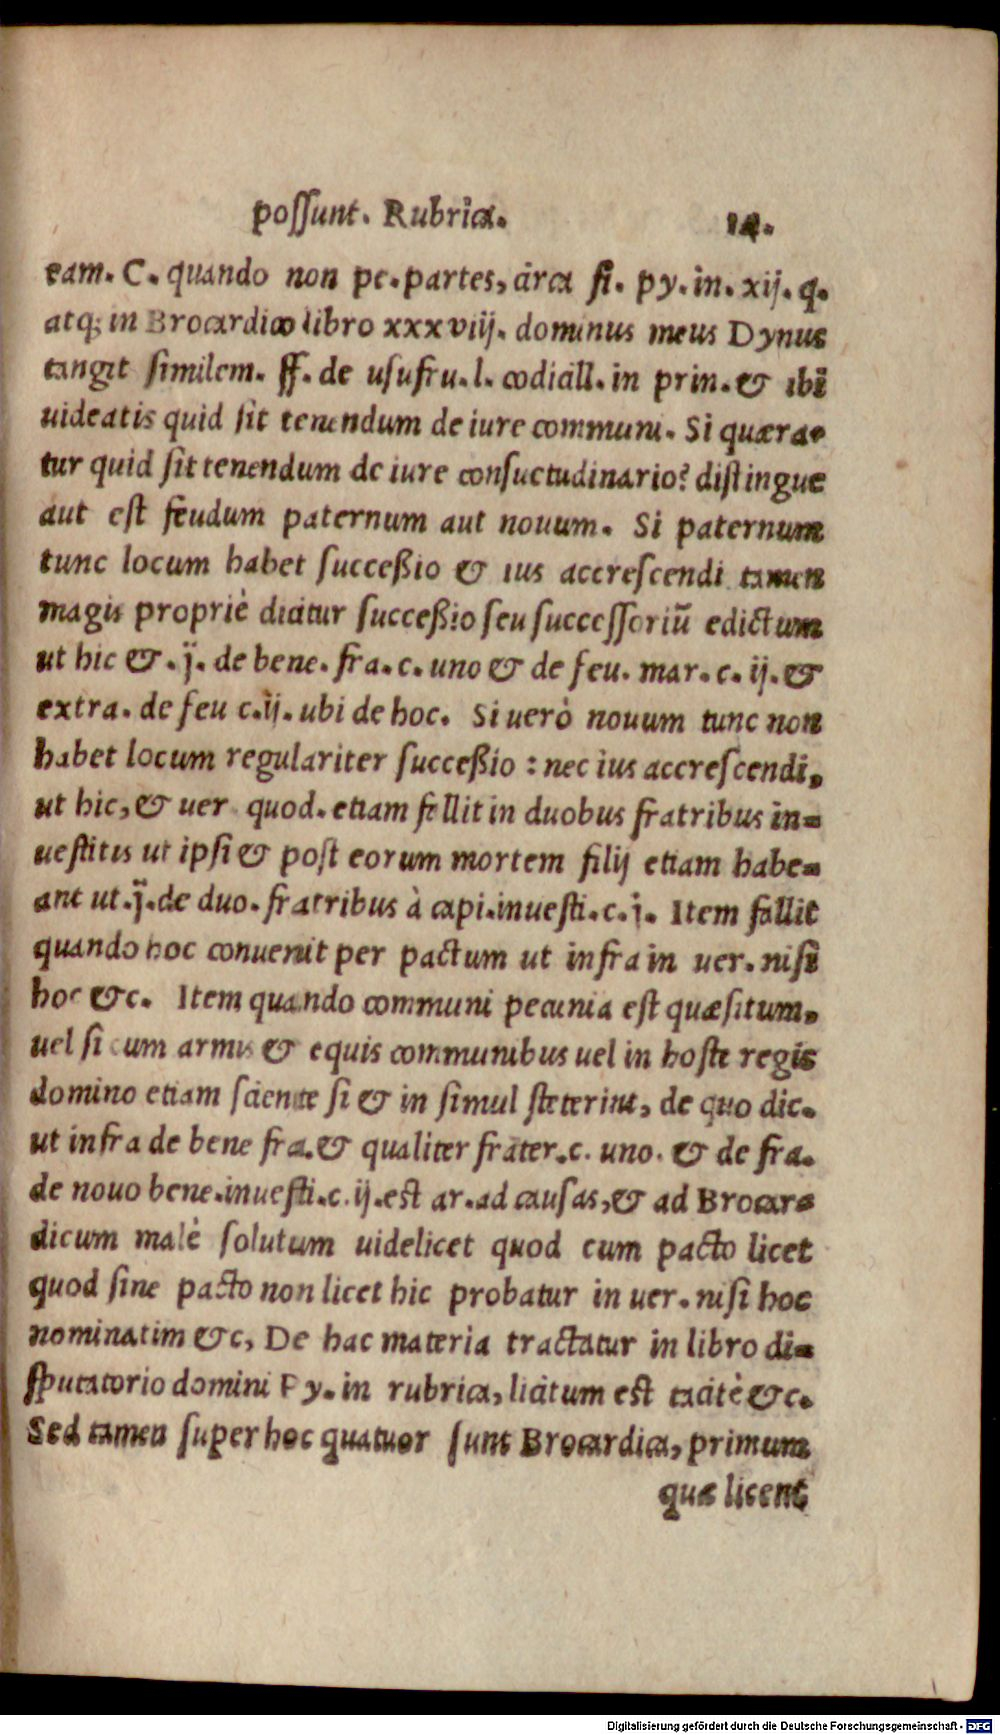 possunt. Rubrica. 14.
eam. C. quando non pe. partes, circa fi. py. in. xij. q.
atq; in Brocardico libro xxxviij. dominus meus Dynus
tangit similem. ff. de usufru. l. codicill. in prin. & ibi
uideatis quid sit tenendum de iure communi. Si quæra-
tur quid sit tenendum de iure consuetudinario? distingue
aut est feudum paternum aut nouum. Si paternum
tunc locum habet successio & ius accrescendi tamen
magis propriè dicitur successio seu successoriũ edictum
ut hic &. j. de bene. fra. c. uno & de feu. mar. c. ij. &
extra. de feu c. ij. ubi de hoc. Si uerò nouum tunc non
habet locum regulariter successio : nec ius accrescendi,
ut hic, & uer. quod. etiam fellit in duobus fratribus in-
uestitis ut ipsi & post eorum mortem filij etiam habe-
ant ut. j. de duo. fratribus à capi. inuesti. c. j. Item fallit
quando hoc conuenit per pactum ut infra in uer. nisi
hoc &c. Item quando communi pecunia est quæsitum,
uel si cum armis & equis communibus uel in hoste regis
domino etiam sciente si & in simul steterint, de quo dic.
ut infra de bene fra. & qualiter frater. c. uno. & de fra.
de nouo bene. inuesti. c. ij. est ar. ad causas, & ad Brocar-
dicum malè solutum uidelicet quod cum pacto licet
quod sine pacto non licet hic probatur in uer. nisi hoc
nominatim &c, De hac materia tractatur in libro di-
sputatorio domini Py. in rubrica, licitum est tacitè &c.
Sed tamen super hoc quatuor sunt Brocardica, primum
quæ licent
Digitalisierung gefördert durch die Deutsche Forschungsgemeinschaft - DFG